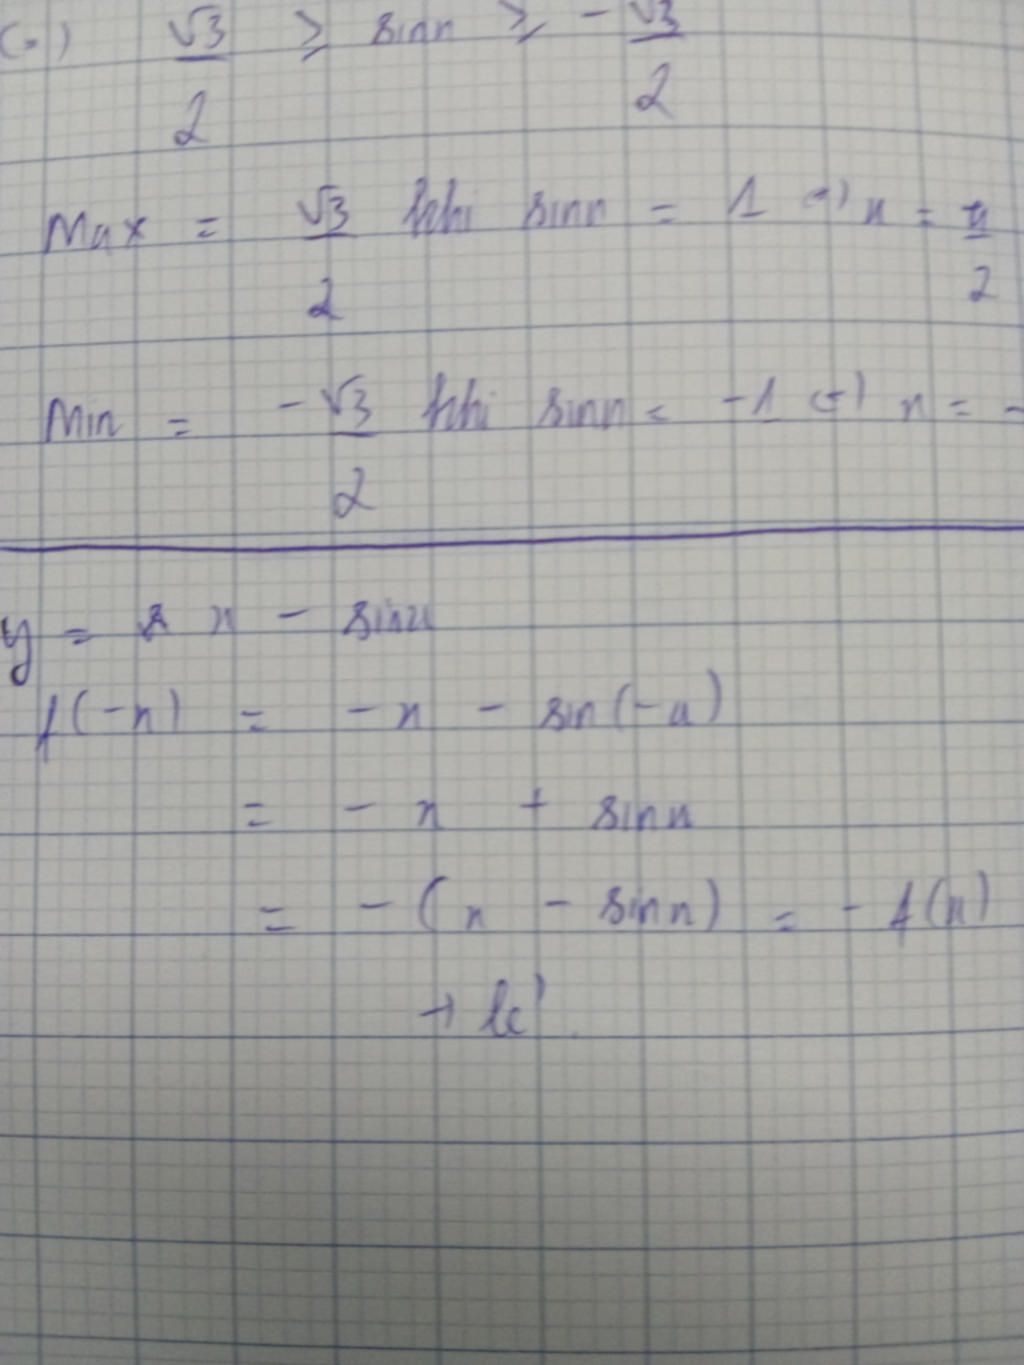 (=) √3/2 ≥ sinx ≥ -√3/2
Max = √3/2 khi sinx = 1 (=) x = π/2
Min = -√3/2 khi sinx = -1 (=) x = -
y = x - sinx
f(-x) = -x - sin(-x)
= -x + sinx
= -(x - sinx) = -f(x)
→ lẻ.